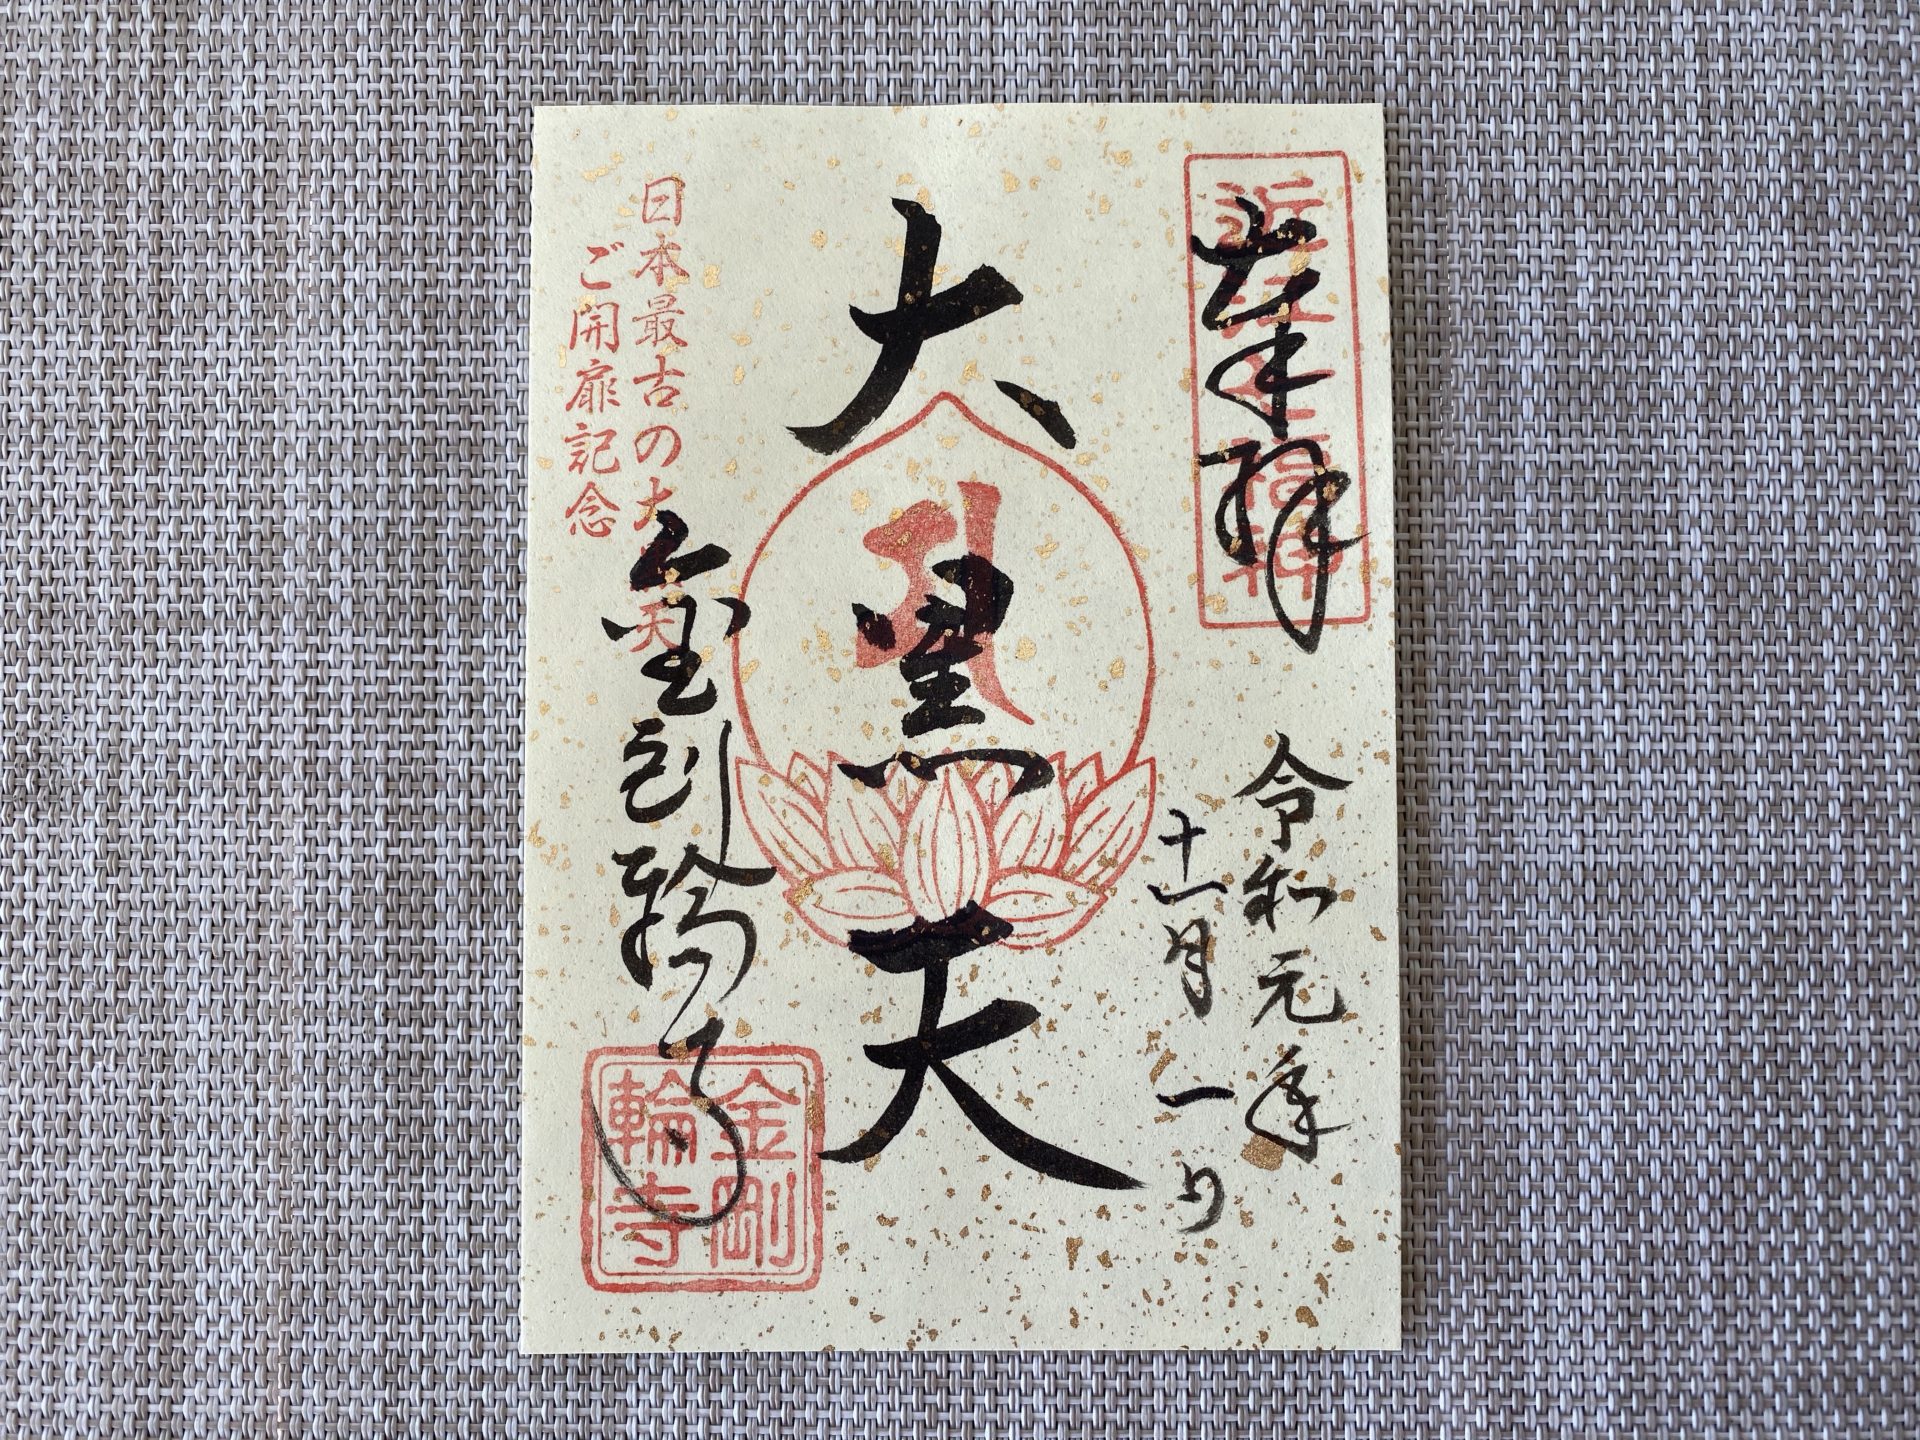 近江七福神
奉拝
令和元年
十一月一日
大黒天
日本最古の大黒天
ご開扉記念
金剛輪寺
金剛
輪寺